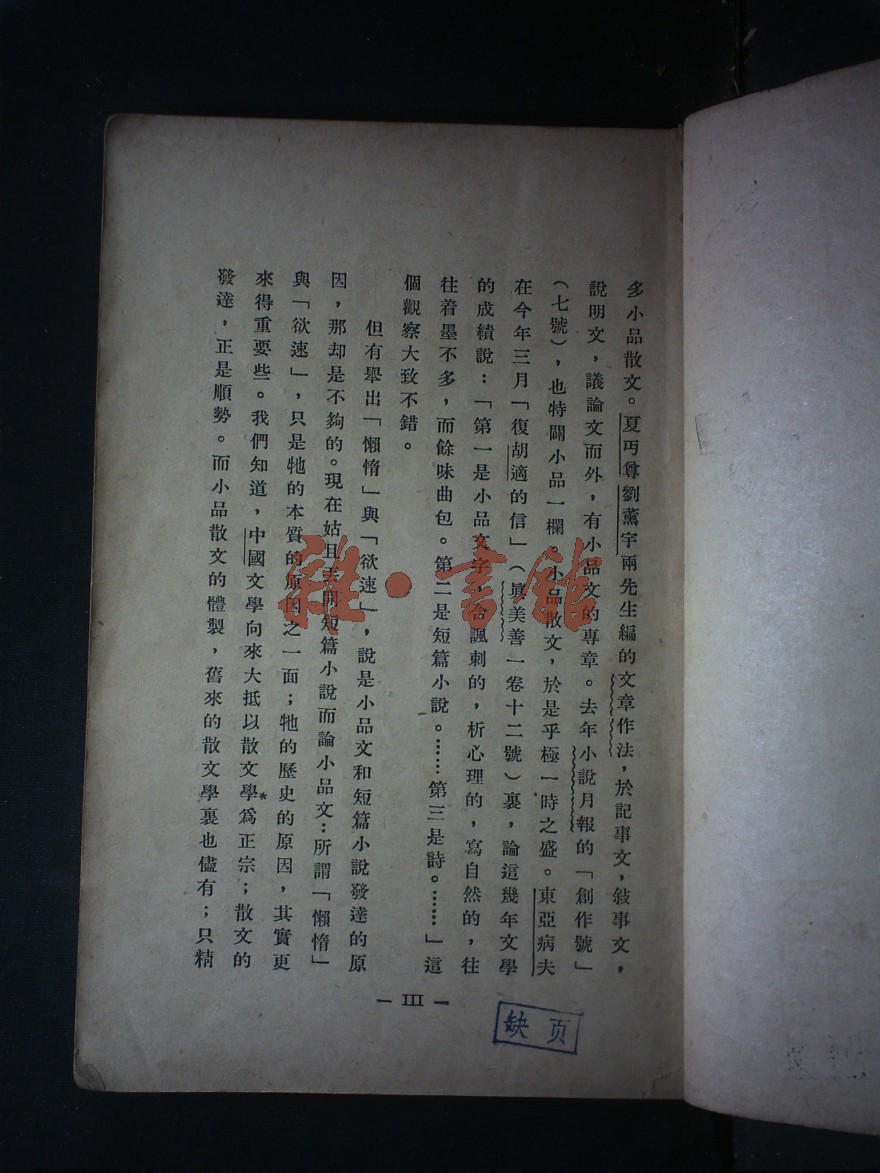 多小品散文。夏丏尊劉薰宇兩先生編的文章作法，於記事文，敍事文，
說明文，議論文而外，有小品文的專章。去年小說月報的「創作號」
（七號），也特闢小品一欄。小品散文，於是乎極一時之盛。東亞病夫
在今年三月「復胡適的信」（眞美善一卷十二號）裏，論這幾年文學
的成績說：「第一是小品文字，含諷刺的，析心理的，寫自然的，往
往着墨不多，而餘味曲包。第二是短篇小說。……第三是詩。……」這
個觀察大致不錯。
但有舉出「懶惰」與「欲速」，說是小品文和短篇小說發達的原
因，那却是不夠的。現在姑且丟開短篇小說而論小品文：所謂「懶惰」
與「欲速」，只是牠的本質的原因之一面；牠的歷史的原因，其實更
來得重要些。我們知道，中國文學向來大抵以散文學*爲正宗；散文的
發達，正是順勢。而小品散文的體製，舊來的散文學裏也儘有；只精
— III —
缺页
雜·書館